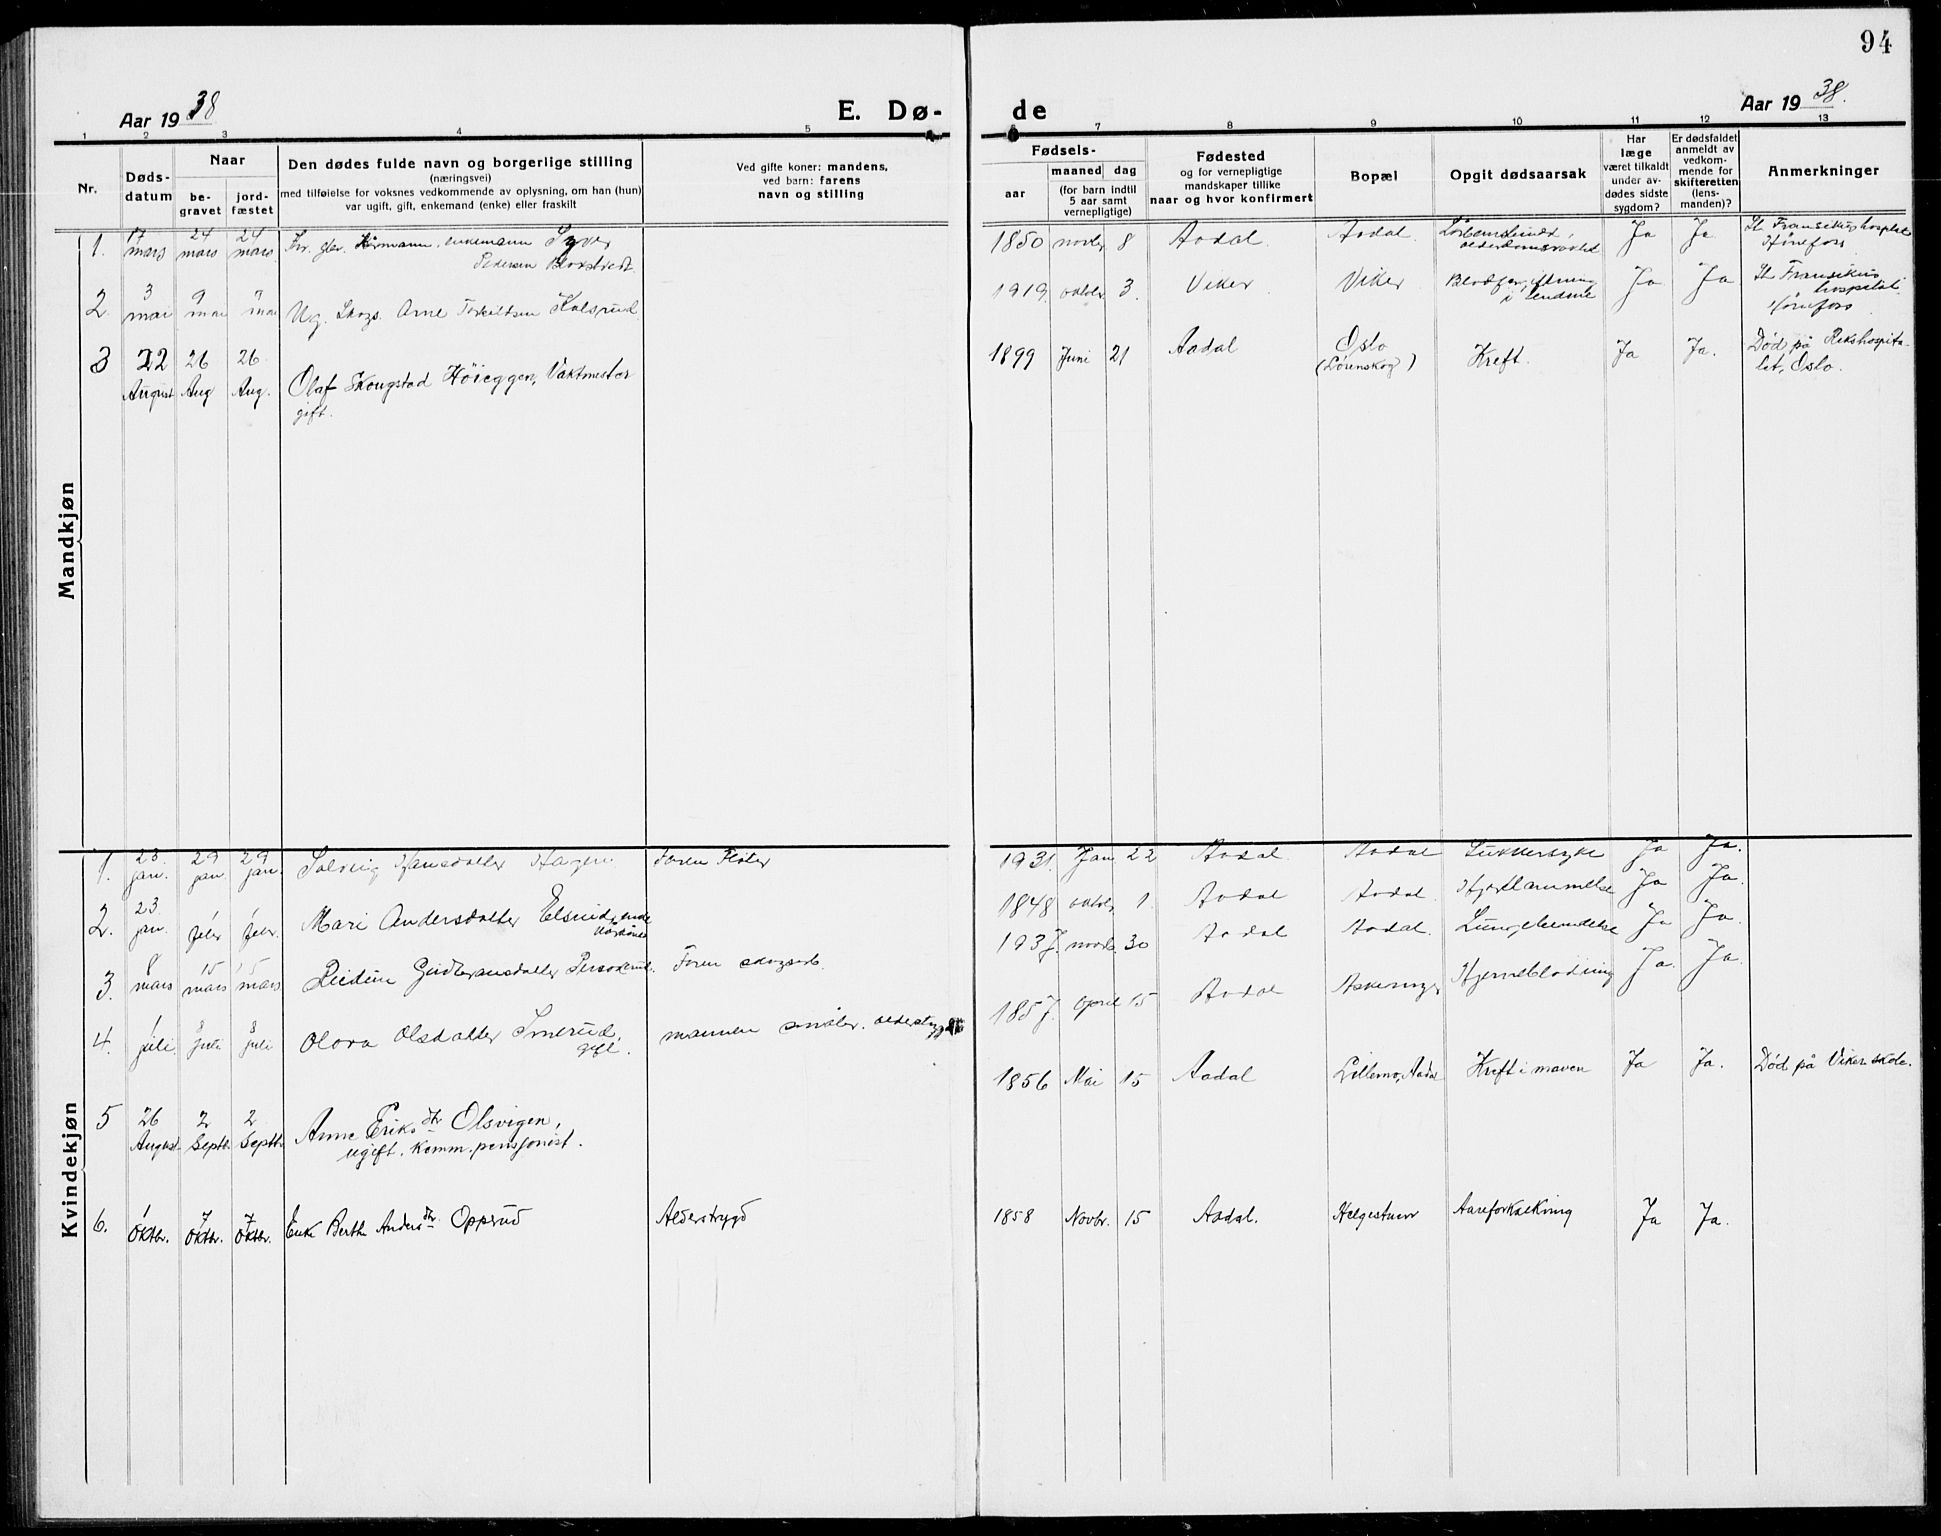 94
Aar 1938
E. Dø-
de
Aar 1938.
1 2 3 4 5
6 7 8 9 10 11 12 13
Nr.
Døds-
datum
Naar
be-
gravet
jord-
fæstet
Den dødes fulde navn og borgerlige stilling
(næringsvei)
med tilføielse for voksnes vedkommende av oplysning, om han (hun)
var ugift, gift, enkemand (enke) eller fraskilt
Ved gifte koner: mandens,
ved barn: farens
navn og stilling
Fødsels-
aar
maaned dag
(for barn indtil
5 aar samt
vernepligtige)
Fødested
og for vernepligtige
mandskaper tillike
naar og hvor konfirmert
Bopæl
Opgit dødsaarsak
Har
læge
været tilkaldt
under av-
dødes sidste
sygdom?
Er dødsfaldet
anmeldt av
vedkom-
mende for
skifteretten
(lens-
manden)?
Anmerkninger
Mandkjøn
1. 17 mars 24 mars 24 mars
enkemann Syver
Pedersen
1850 novbr 8 Aadal. Aadal. Ja Ja St. Fransiskushospital
Hønefoss
2. 3 mai 9 mai 9 mai Ug. Skogs. Arne Torkildsen Kolsrud
1919. oktbr 3. Viker Viker Blodforgiftning
i Ja Ja St. Fransikus
hospital.
Hønefoss
3 22 August 26 Aug 26. Aug. Olaf Skougstad Høieggen, Vaktmester
gift.
1899 Juni 21 Aadal Oslo
(Lørenskog) Kreft. Ja Ja. Død på Rikshospita-
let, Oslo.
Kvindekjøn
1. 23. jan. 29 jan. 29 jan. Solveig Hansdatter Hagen Faren Fløter
1931. Jan. 22 Aadal. Aadal Sukkersyke Ja Ja.
2. 23. jan. 1 febr 1 febr. Mari Andersdatter Elsrud, enke
1848 oktbr. 1. Aadal Aadal. Hjertelammelse Ja Ja.
3. 8 mars 15 mars 15 mars Reidun Gudbransdatter Faren skogsarb.
1937. novbr. 30 Aadal Aadal. Lungebetendelse Ja Ja.
4. 1 juli. 8 juli 8 juli Olava Olsdatter Smerud,
gift. mannen småbr. alderstrygd
1857. April 15 Aadal Hjerneblødning Ja. Ja.
5 26 August 2 Septbr. 2 Septbr. Anne Eriks dtr Olsvigen,
ugift. Komm. pensjonist.
1856 Mai 15 Aadal Lillemo, Aadal Kreft i maven Ja Ja. Død på Viker skole.
6. 1 Oktbr. 7 Oktbr. 7 Oktbr. Enke Berthe Anders dtr. Opperud Alderstrygd
1858 Novbr. 15 Aadal. Helgestuen Aareforkalkning Ja Ja.